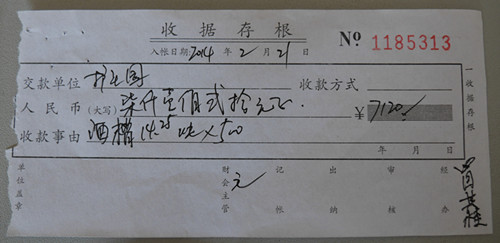 收据存根
入帐日期 2014 年 2 月 21 日
№ 1185313
交款单位 收款方式
人民币(大写) 柒仟壹佰贰拾元正 ¥ 7120
收款事由 酒糟 14.25 吨×500
年 月 日
一收据存根
单位盖章 财会主管 记帐 出纳 审核 经办